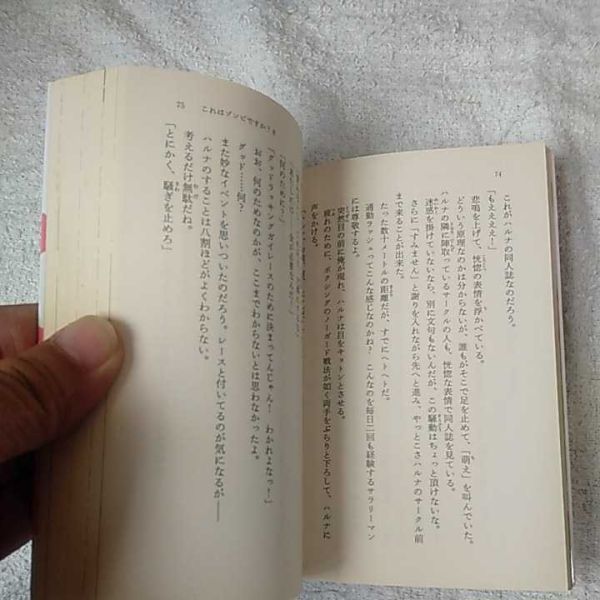 74
これがハルナの同人誌なのだろう。
「もええええ！」
悲鳴を上げて、恍惚の表情を浮かべている。
どういう原理なのかは分からないが、誰もがそこで足を止めて、「萌え」を叫んでいた。
ハルナの隣に陣取っているサークルの人も、恍惚な表情で同人誌を見ている。
迷惑を掛けていないなら、別に文句もないんだが、この騒動はちょっと頂けないな。
さらに「すみません」と謝りを入れながら先へと進み、やっとこさハルナのサークル前
まで来ることが出来た。
たった数十メートルの距離だが、すでにヘトヘトだ。
通勤ラッシュってこんな感じなのかね？　こんなのを毎日二回も経験するサラリーマン
には尊敬するよ。
突然目の前に俺が現れ、ハルナは目をキョトンとさせる。
疲れのために、ボクシングのノーガード戦法が如く両手をぶらりと下ろして、ハルナに
声をかける。
75　これはゾンビですか？
「何のために？」
「グッドラッキングガイレースのために決まってんじゃん！　わかれよなっ！」
おお、何のためなのかが、ここまでわからないとは思わなかったよ。
グッド……何？
また妙なイベントを思いついたのだろう。レースと付いてるのが気になるが――
ハルナのすることは八割ほどがよくわからない。
考えるだけ無駄だね。
「とにかく、騒ぎを止めろ」